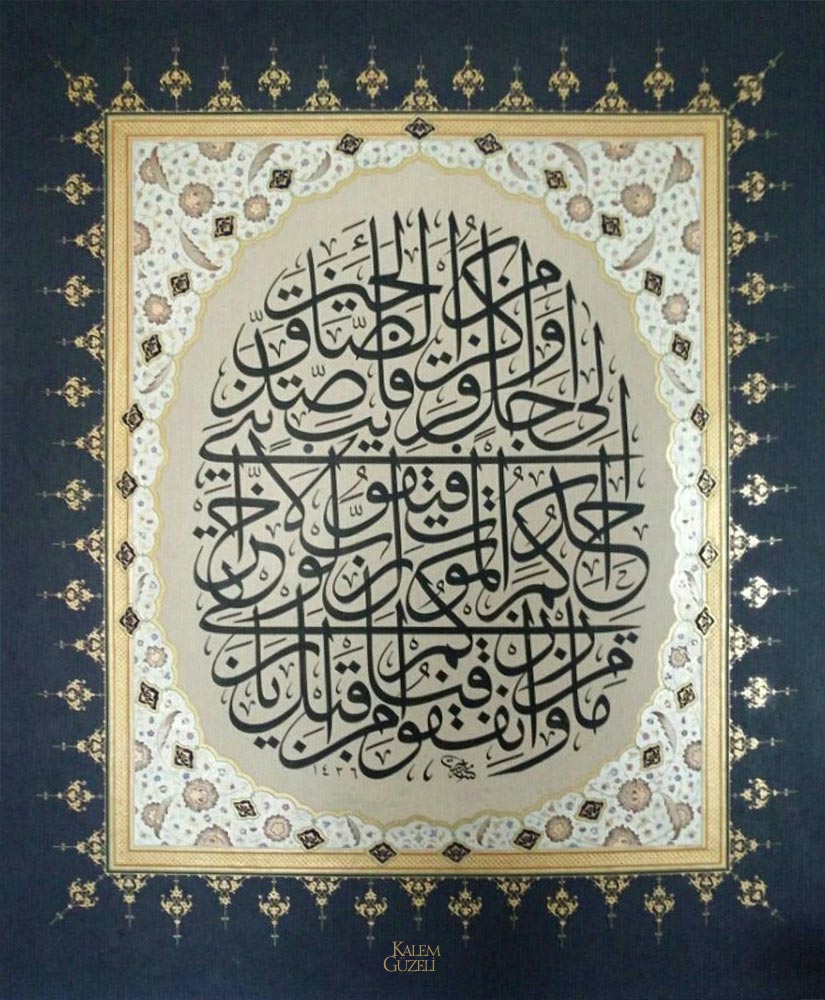 وَأَنْفِقُوا مِنْ مَا رَزَقْنَاكُمْ مِنْ قَبْلِ أَنْ يَأْتِيَ
أَحَدَكُمُ الْمَوْتُ فَيَقُولَ رَبِّ لَوْلَا أَخَّرْتَنِي
إِلَى أَجَلٍ قَرِيبٍ فَأَصَّدَّقَ وَأَكُنْ مِنَ الصَّالِحِينَ
١٤٣٦
KALEM
GÜZELİ